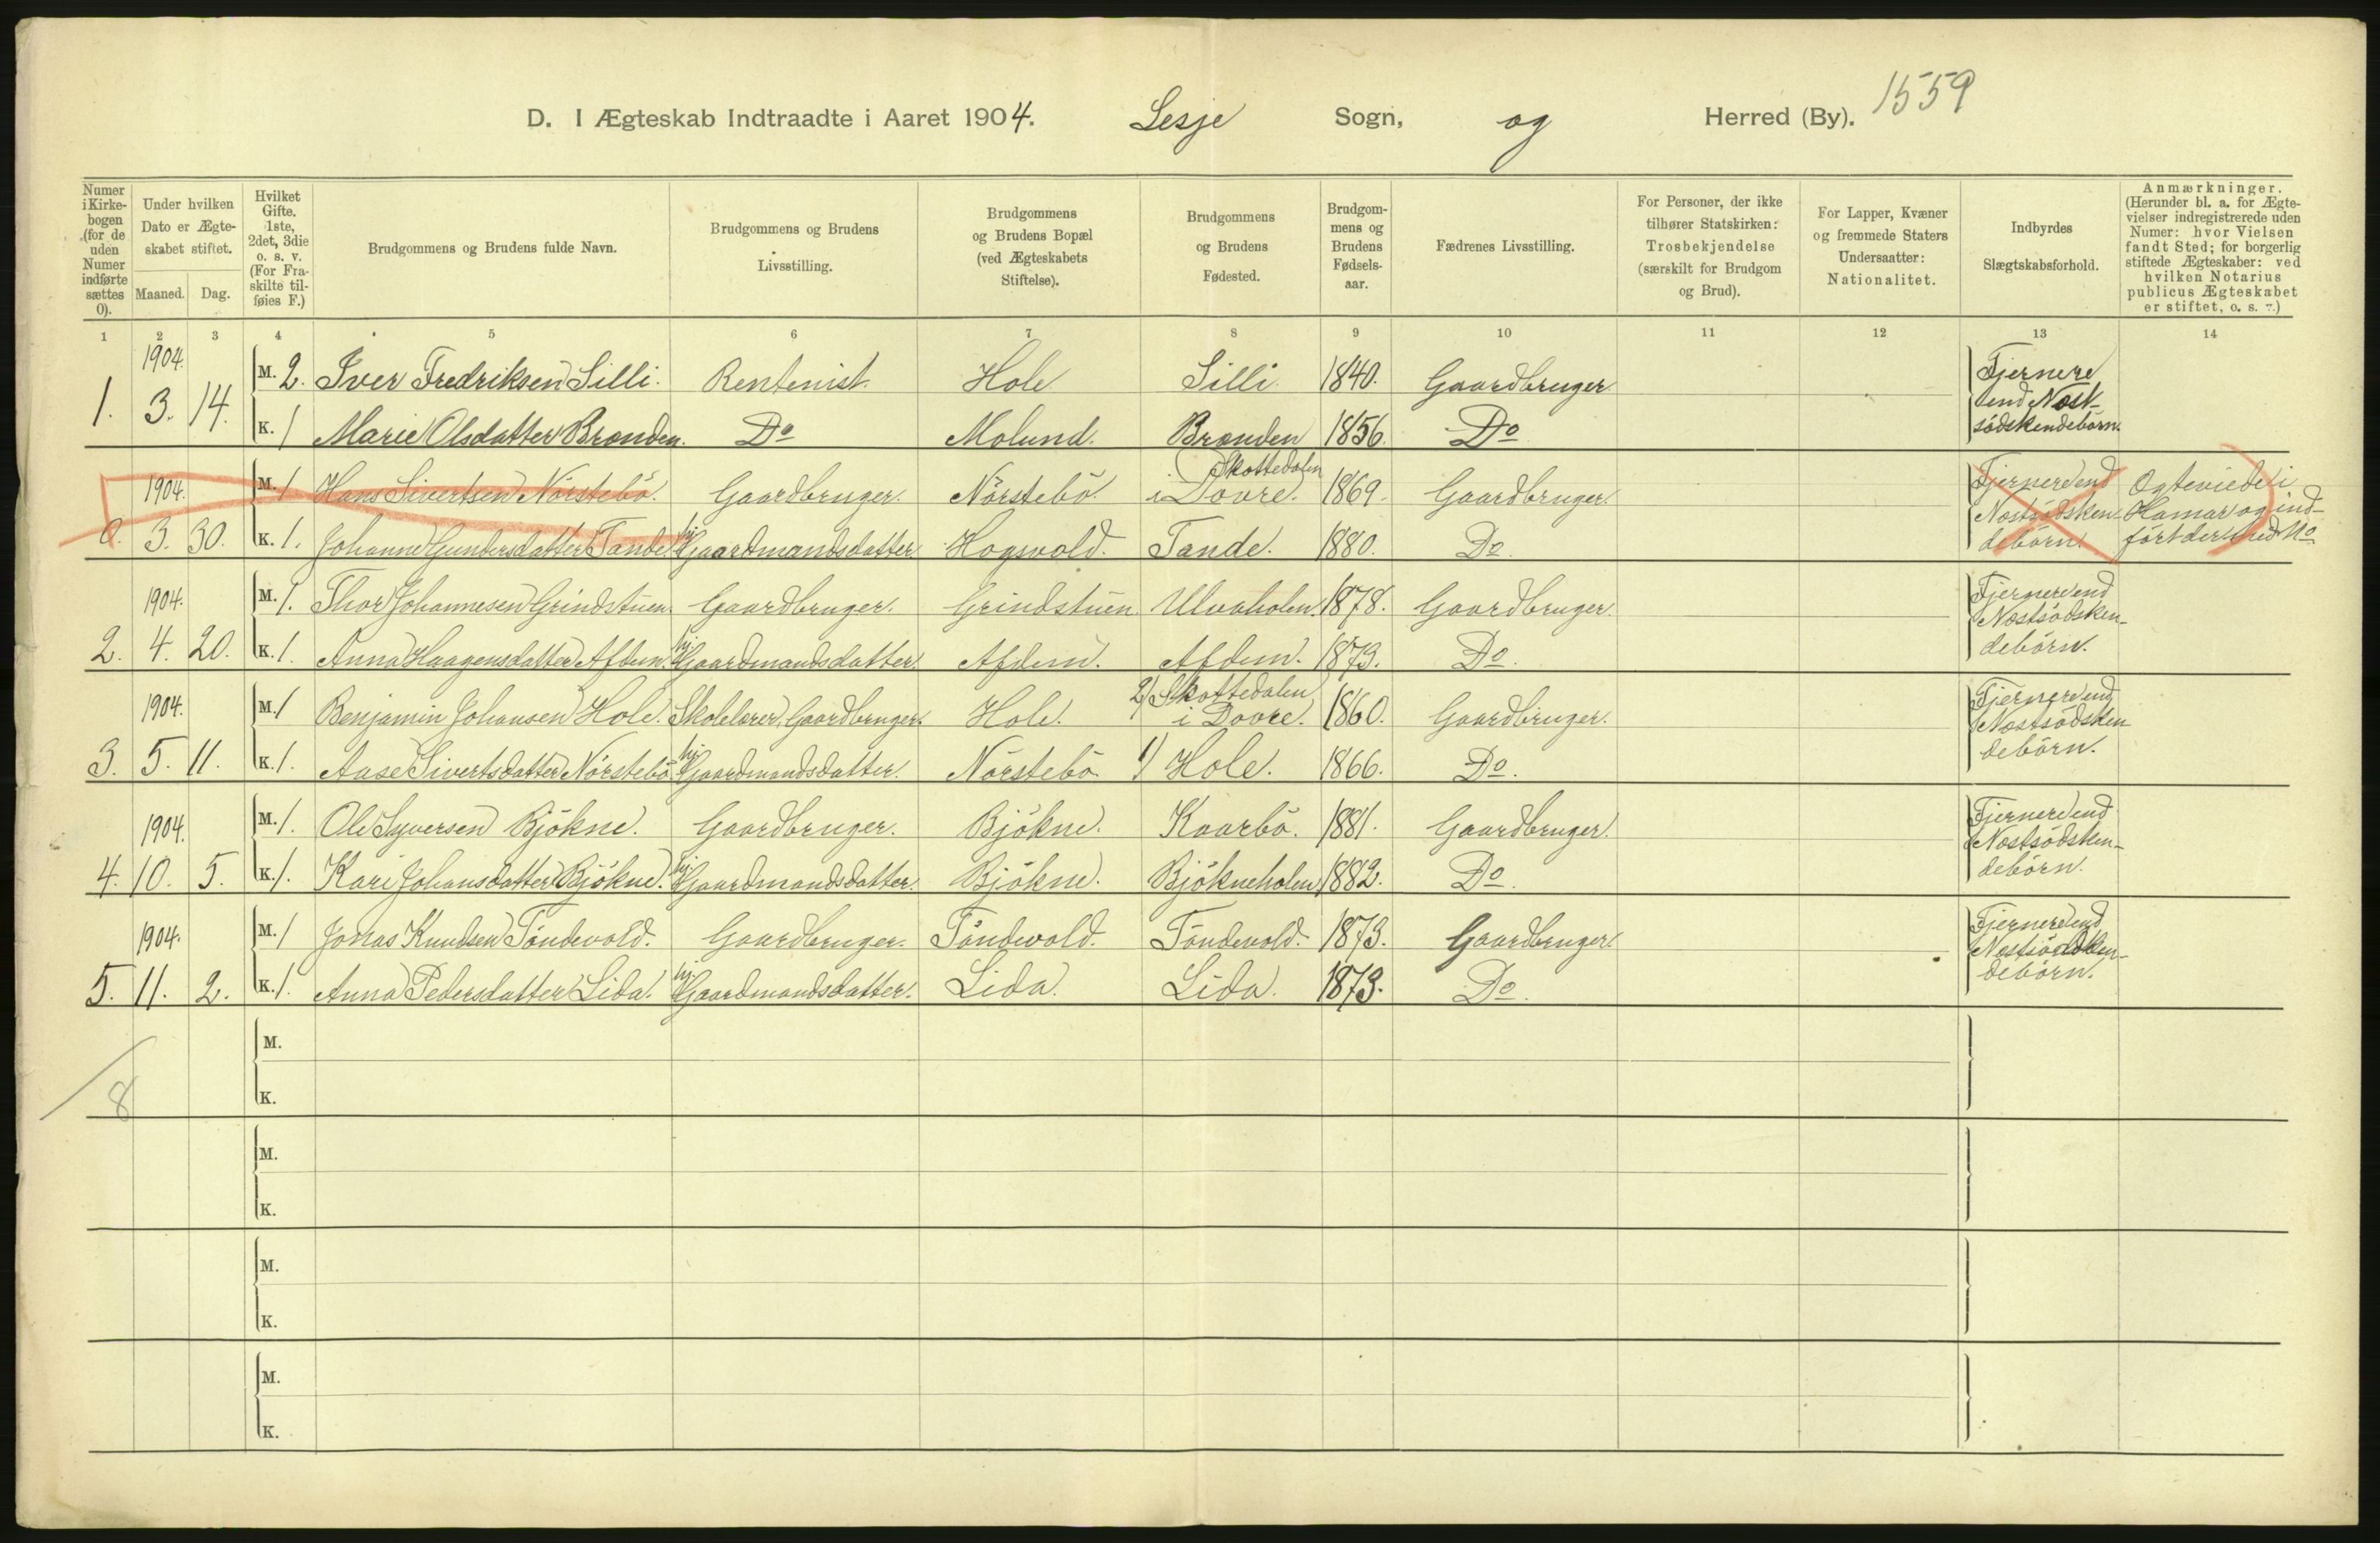 1559
D. I Ægteskab Indtraadte i Aaret 1904. Lesje Sogn, og Herred (By).
Numer i Kirke-bogen (for de uden Numer indførte sættes 0).
Under hvilken Dato er Ægte-skabet stiftet.
Maaned. Dag.
Hvilket Gifte. 1ste, 2det, 3die o. s. v. (For Fra-skilte til-føies F.)
Brudgommens og Brudens fulde Navn.
Brudgommens og Brudens Livsstilling.
Brudgommens og Brudens Bopæl (ved Ægteskabets Stiftelse).
Brudgommens og Brudens Fødested.
Brudgom-mens og Brudens Fødsels-aar.
Fædrenes Livsstilling.
For Personer, der ikke tilhører Statskirken: Trosbekjendelse (særskilt for Brudgom og Brud).
For Lapper, Kvæner og fremmede Staters Undersaatter: Nationalitet.
Indbyrdes Slægtskabsforhold.
Anmærkninger. (Herunder bl. a. for Ægte-vielser indregistrerede uden Numer: hvor Vielsen fandt Sted; for borgerlig stiftede Ægteskaber: ved hvilken Notarius publicus Ægteskabet er stiftet, o. s. v.)
1 2 3 4 5 6 7 8 9 10 11 12 13 14
1904.
1. 3. 14.
M. 2. Iver Fredriksen Lilli. Rentenist. Hole Lilli. 1840. Gaardbruger
K. 1 Marie Olsdatter Brænden. Do Molund. Brænden 1856. Do
Fjernere
end Næst-
södskendebörn.
1904.
0. 3. 30.
M. 1 Hans Sivertsen Nörstebö. Gaardbruger. Nörstebö. Skottedalen i Dovre. 1869. Gaardbruger.
K. 1. Johanne Gundersdatter Tande hj. Gaardmandsdatter Hogsvold. Tande. 1880. Do
Fjernere end
Næstsödsken-
debörn.
Ægteviede i
Hamar og ind-
fört der med No
1904.
2. 4. 20.
M. 1. Thor Johannesen Grindstuen. Gaardbruger. Grindstuen Ulvaholen. 1878. Gaardbruger.
K. 1. Anna Haagensdatter Afdem. hj. Gaardmandsdatter. Afdem. Afdem. 1879. Do.
Fjernere end
Næstsödsken-
debörn.
1904.
3. 5. 11.
M. 1 Benjamin Johansen Hole. Skolelærer, Gaardbruger. Hole. 2) Skottedalen i Dovre. 1860. Gaardbruger.
K. 1. Aase Sivertsdatter Nörstebö hj. Gaardmandsdatter. Nörstebö. 1) Hole. 1866. Do.
Fjernere end
Næstsödsken
debörn.
1904.
4. 10. 5.
M. 1. Ole Syversen Bjökne. Gaardbruger. Bjökne. Kaarbö. 1881. Gaardbruger.
K. 1. Kari Johansdatter Bjökne. hj. Gaardmandsdatter. Bjökne. Bjökneholen 1882. Do.
Fjernere end
Næstsödsken-
debörn.
1904.
5. 11. 2.
M. 1 Jonas Knudsen Töndevold. Gaardbruger. Töndevold. Töndevold. 1873. Gaardbruger
K. 1. Anna Pedersdatter Lida. hj. Gaardmandsdatter. Lida. Lida. 1873. Do.
Fjernere end
Næstsödsken-
debörn.
M.
8
K.
M.
K.
M.
K.
M.
K.